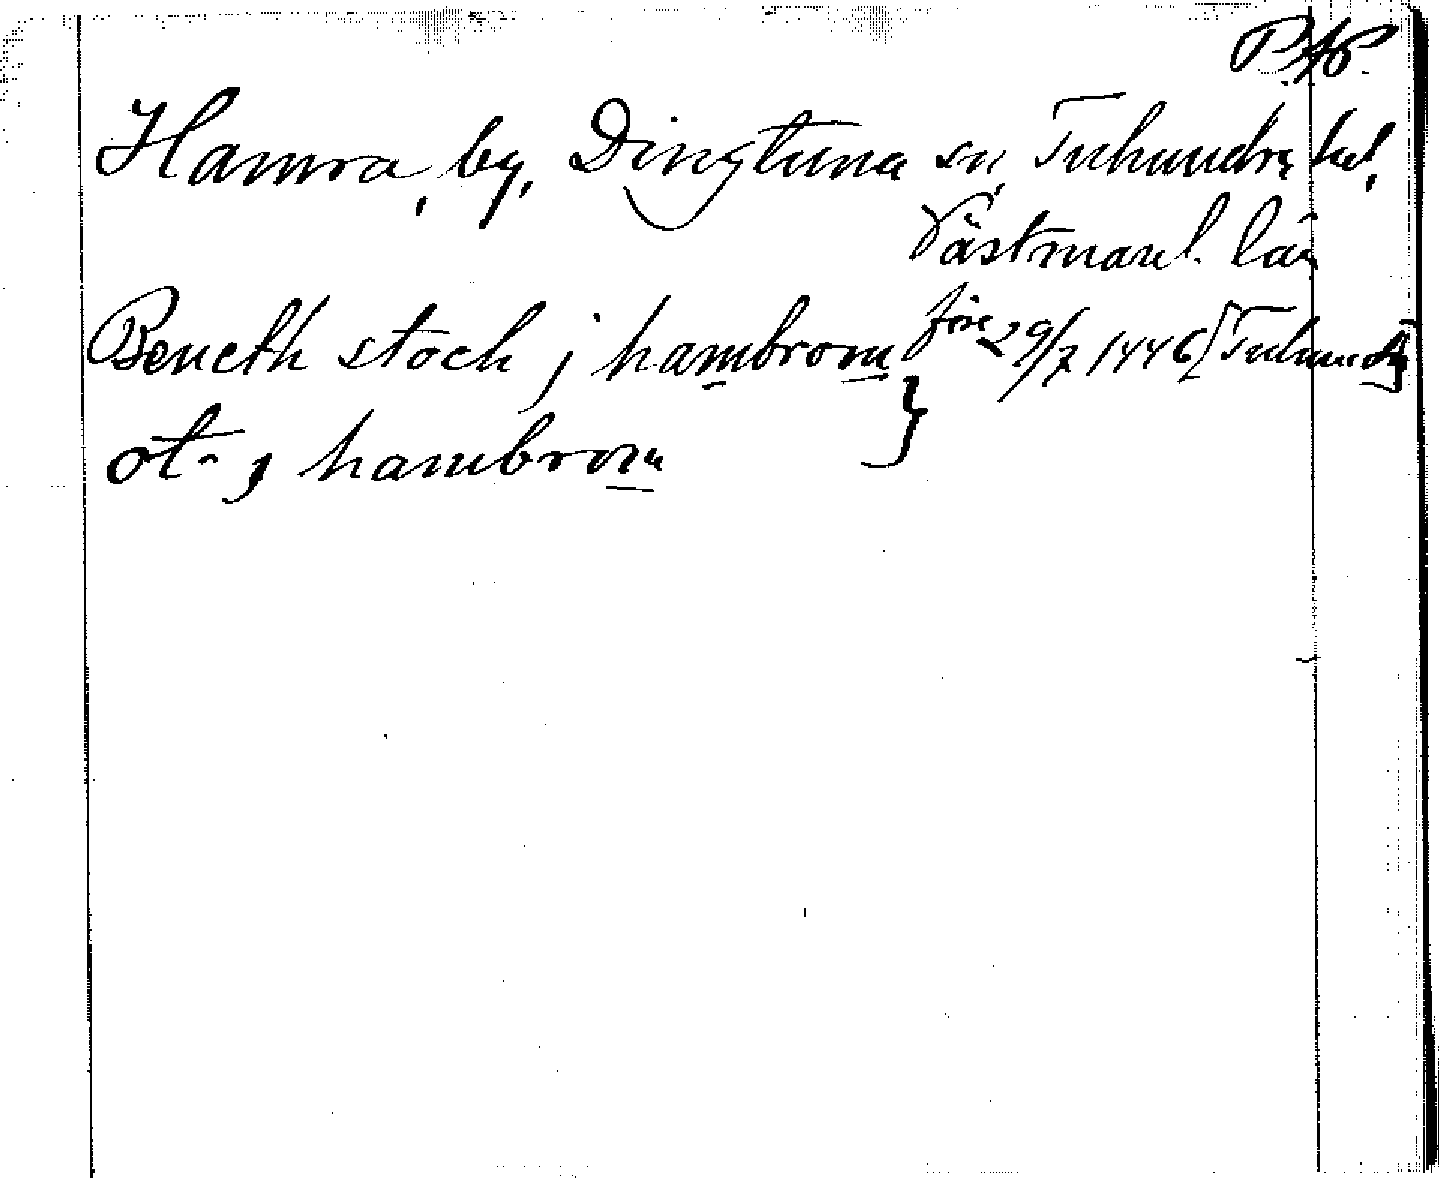 P.Ap.
Hamra, by, Dingtuna sn, Tuhundra hd,
Västmanl. län
Beneth stoch j hambrom } före 29/7 1446 [Tuhundr]
ot- j hambrom